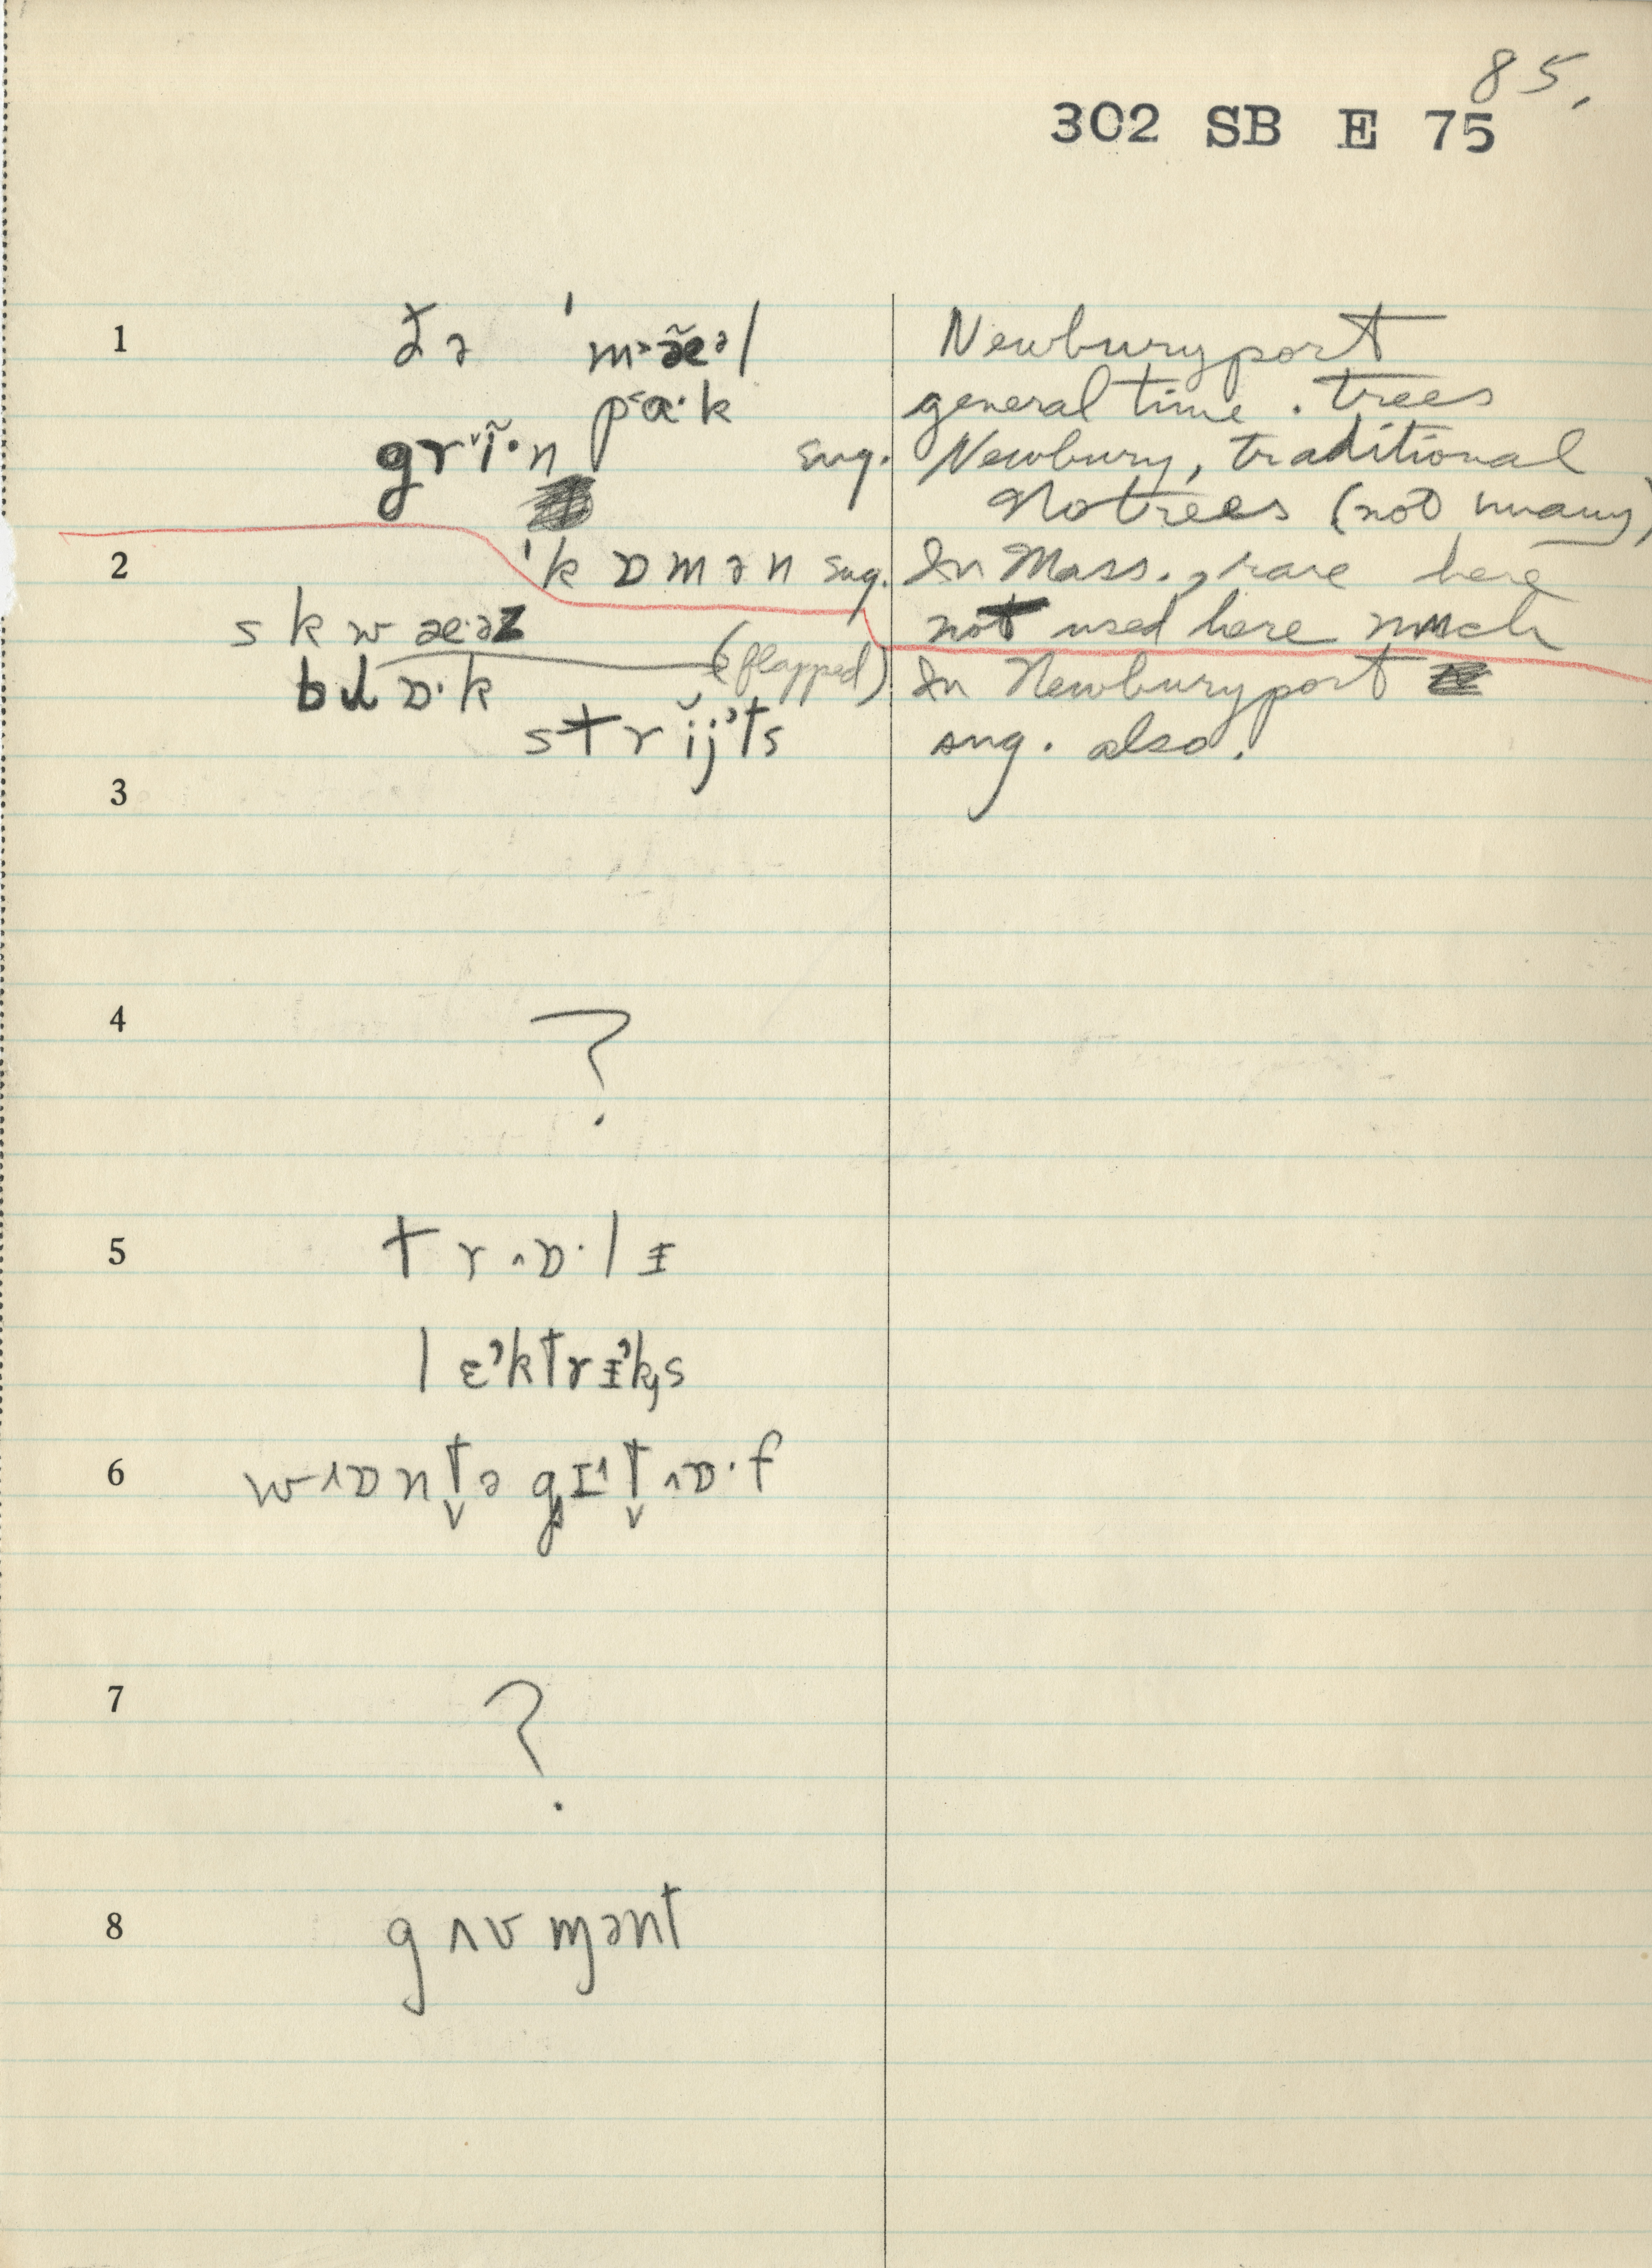 85.
302 SB E 75
1 ðə ˈm˃æ̃ᵊl Newburyport
p˂ɑ·k general time. trees
grᵛĩ·n sug. Newbury, traditional
No trees (not many)
2 ˈkɒmən sug. In Mass., rare here
skwæ·əz not used here much
blɒ·k (flapped) In Newburyport
strĭj'ts sug. also.
3
4 ?
5 tr˄ɒ·lɪ
lɛ'ktrɪ'ks
6 w˄ɒntə gɪ˄t˄ɒ·f
7 ?
8 gʌvmənt